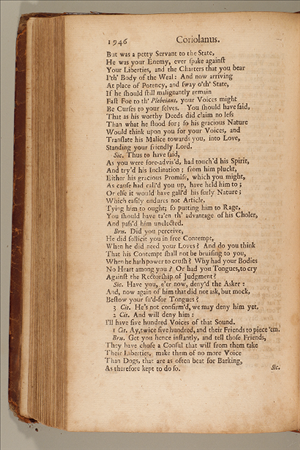 1946 Coriolanus.
But was a petty Servant to the State,
He was your Enemy, ever spake against
Your Liberties, and the Charters that you bear
I'th' Body of the Weal: And now arriving
At place of Potency, and sway o'th' State,
If he should still malignantly remain
Fast Foe to th' Plebeians, your Voices might
Be Curses to your selves. You should have said,
That as his worthy Deeds did claim no less
Than what he stood for; so his gracious Nature
Would think upon you for your Voices, and
Translate his Malice towards you, into Love,
Standing your friendly Lord.
Sic. Thus to have said,
As you were fore-advis'd, had touch'd his Spirit,
And try'd his Inclination; from him pluckt,
Either his gracious Promise, which you might,
As cause had call'd you up, have held him to;
Or else it would have gall'd his surly Nature;
Which easily endures not Article,
Tying him to ought; so putting him to Rage,
You should have ta'en th' advantage of his Choler,
And pass'd him unelected.
Bru. Did you perceive,
He did sollicit you in free Contempt,
When he did need your Loves? And do you think
That his Contempt shall not be bruising to you,
When he hath power to crush? Why had your Bodies
No Heart among you? Or had you Tongues, to cry
Against the Rectorship of Judgment?
Sic. Have you, e'er now, deny'd the Asker:
And, now again of him that did not ask, but mock,
Bestow your su'd-for Tongues?
3 Cit. He's not confirm'd, we may deny him yet.
2 Cit. And will deny him:
I'll have five hundred Voices of that Sound.
1 Cit. Ay, twice five hundred, and their Friends to piece 'em.
Bru. Get you hence instantly, and tell those Friends,
They have chose a Consul that will from them take
Their Liberties, make them of no more Voice
Than Dogs, that are as often beat for Barking,
As therefore kept to do so.
Sic.